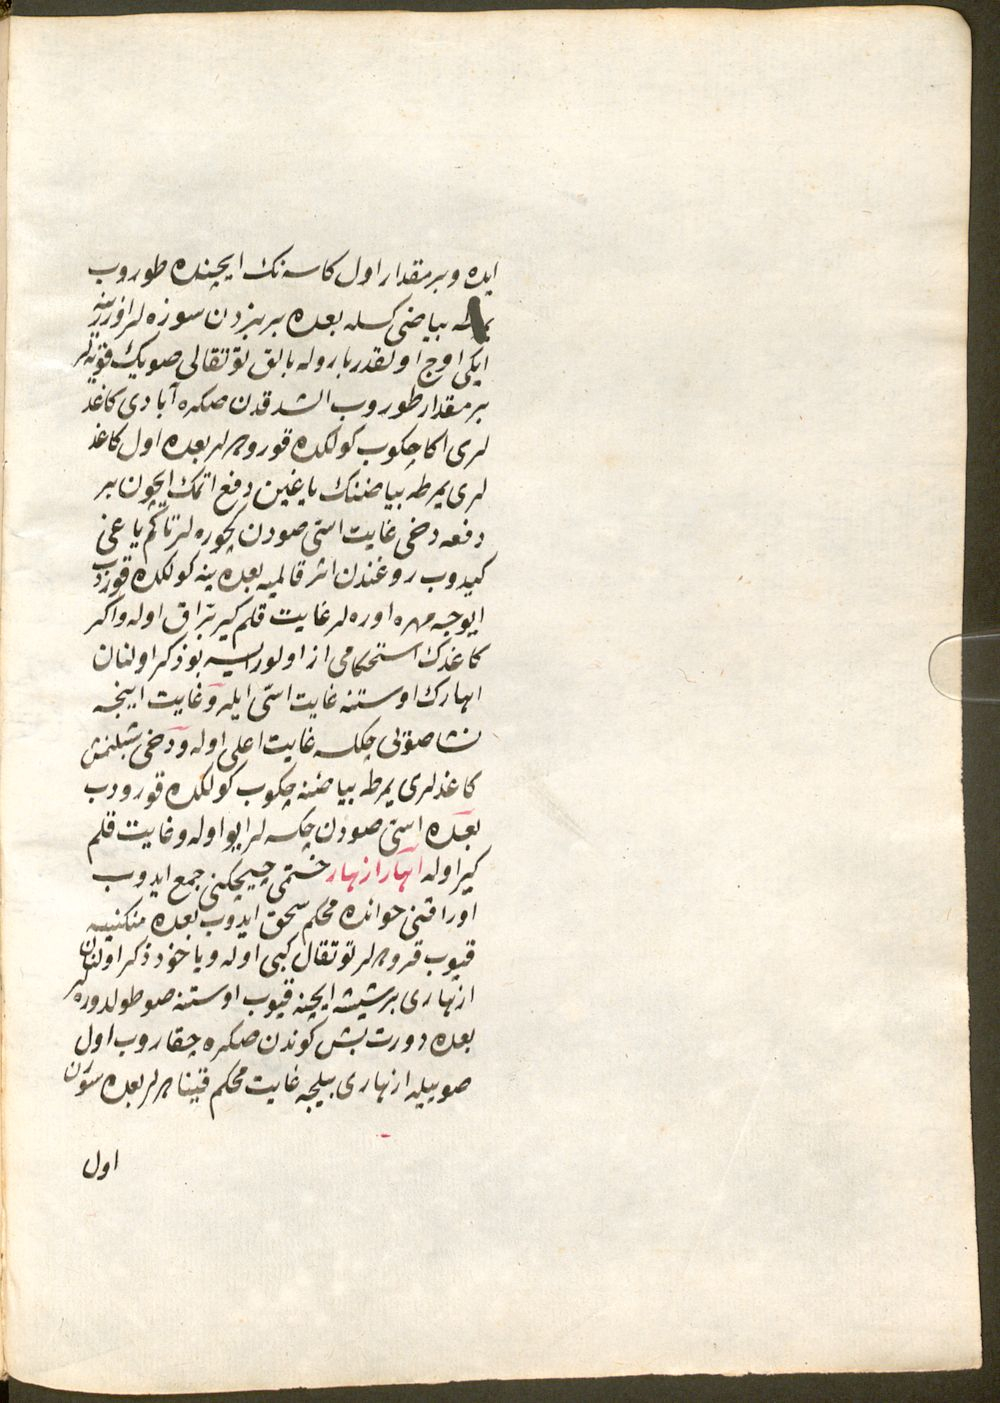 ایده و بر مقدار اول کاسه نك ایچنده طوروب
یمرطه بیاضی کسله بعده بر بزدن سوزه لر اوزرینه
ایکی اوج اولقدر باروله بالق توتقالی صوین قویه لر
بر مقدار طوروب الشدقدن صکره آبادی کاغذ
لری اکا چکوب کولکده قورودلر بعده اول کاغذ
لری یمرطه بیاضنك یاغین دفع اتمك ایچون بر
دفعه دخی غایت استی صودن کچوره لر تا کم یاغی
کیدوب روغندن اثر قالمیه بعده ینه کولکده قوردب
ایوجه مهره اوره لر غایت قلم کیر براق اوله و اکر
کاغدك استحکامی از اولورسه بو ذکر اولنان
اهارك اوستنه غایت استی ایله و غایت اینجه
نشا صوی چکسه غایت اعلی اوله و دخی شبلنمش
کاغدلری یمرطه بیاضنه چکوب کولکده قورودب
بعده استی صودن چکسه لر ایو اوله و غایت قلم
کیر اوله اهار ازهار ختمی چیچکنی جمع ایدوب
اوراقنی حوانده محکم سحق ایدوب بعده منکنیه
قیوب قرودلر توتقال کبی اوله و یا خود ذکر اولنان
ازهاری بر شیشه ایچنه قیوب اوستنه صو طولدوره لر
بعده دورت بش کوندن صکره چقاروب اول
صوییله ازهاری بیلجه غایت محکم قیناده لر بعده سوزن
اول